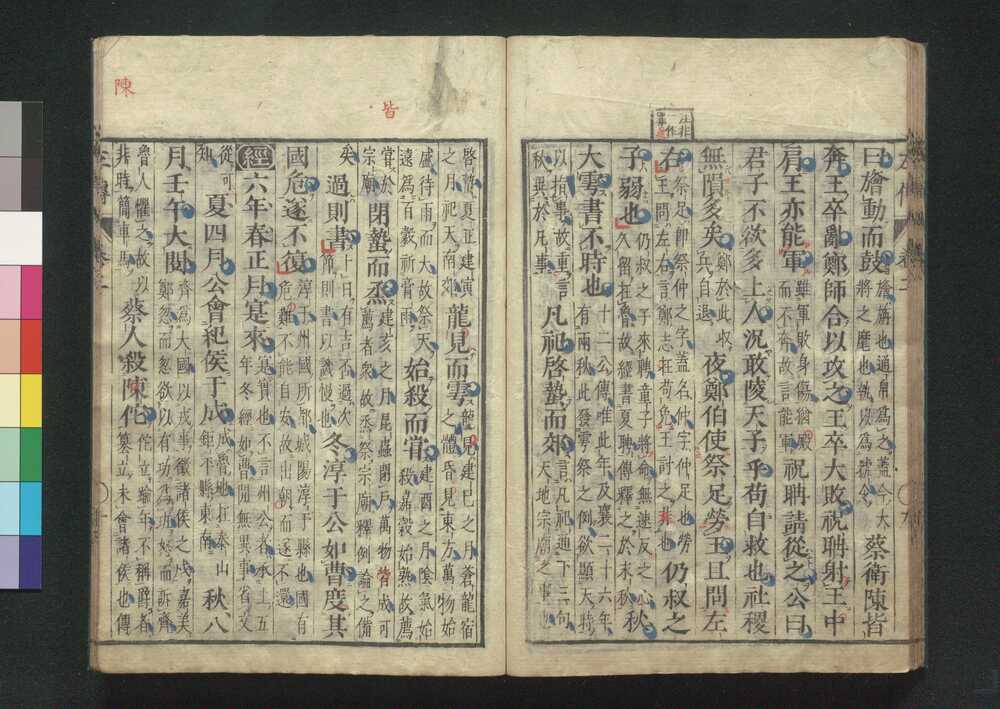 曰旝動而鼓旝旃也通帛為之蓋今大將之麾也執以為號令蔡衛陳皆
奔王卒亂鄭師合以攻之王卒大敗祝聃射王中
肩王亦能軍雖軍敗身傷猶殿而不奔故言能軍祝聃請從之公曰
君子不欲多上人況敢陵天子乎苟自救也社稷
無隕多矣鄭於此收兵自退夜鄭伯使祭足勞王且問左
右祭足即祭仲之字蓋名仲字仲足也勞王問左右言鄭志在苟免王討之非也仍叔之
子弱也仍叔之子來聘童子將命無速反之心久留在魯故經書夏聘傳釋之於末秋秋
大雩書不時也十二公傳唯此年及襄二十六年有兩秋此發雩祭之例欲顯天時
以指事故重言秋異於凡事凡祀啓蟄而郊言凡祀通下三句天地宗廟之事也
啓蟄夏正建寅之月祀天南郊龍見而雩龍見建巳之月蒼龍宿之體昏見東方萬物始
盛待雨而大故祭天遠為百穀祈膏雨始殺而嘗建酉之月陰氣始殺嘉穀始熟故薦
嘗於宗廟閉蟄而烝建亥之月昆蟲閉戶萬物皆成可薦者衆故烝祭宗廟釋例論之備
矣過則書卜日有吉否過次節則書以譏慢也冬淳于公如曹度其
國危遂不復淳于州國所都城陽淳于縣也國有危難不能自安故出朝而遂不還
經六年春正月寔來寔實也不言州公者承上五年冬經如曹間無異事省文
從可知夏四月公會紀侯于成成魯地在泰山鉅平縣東南秋八
月壬午大閱齊為大國以戎事徵諸侯之戍嘉美鄭忽而忽欲以有功為班怒而訴齊
魯人懼之故以非時簡車馬蔡人殺陳佗佗立踰年不稱爵者簒立未會諸侯也傳
皆
陳